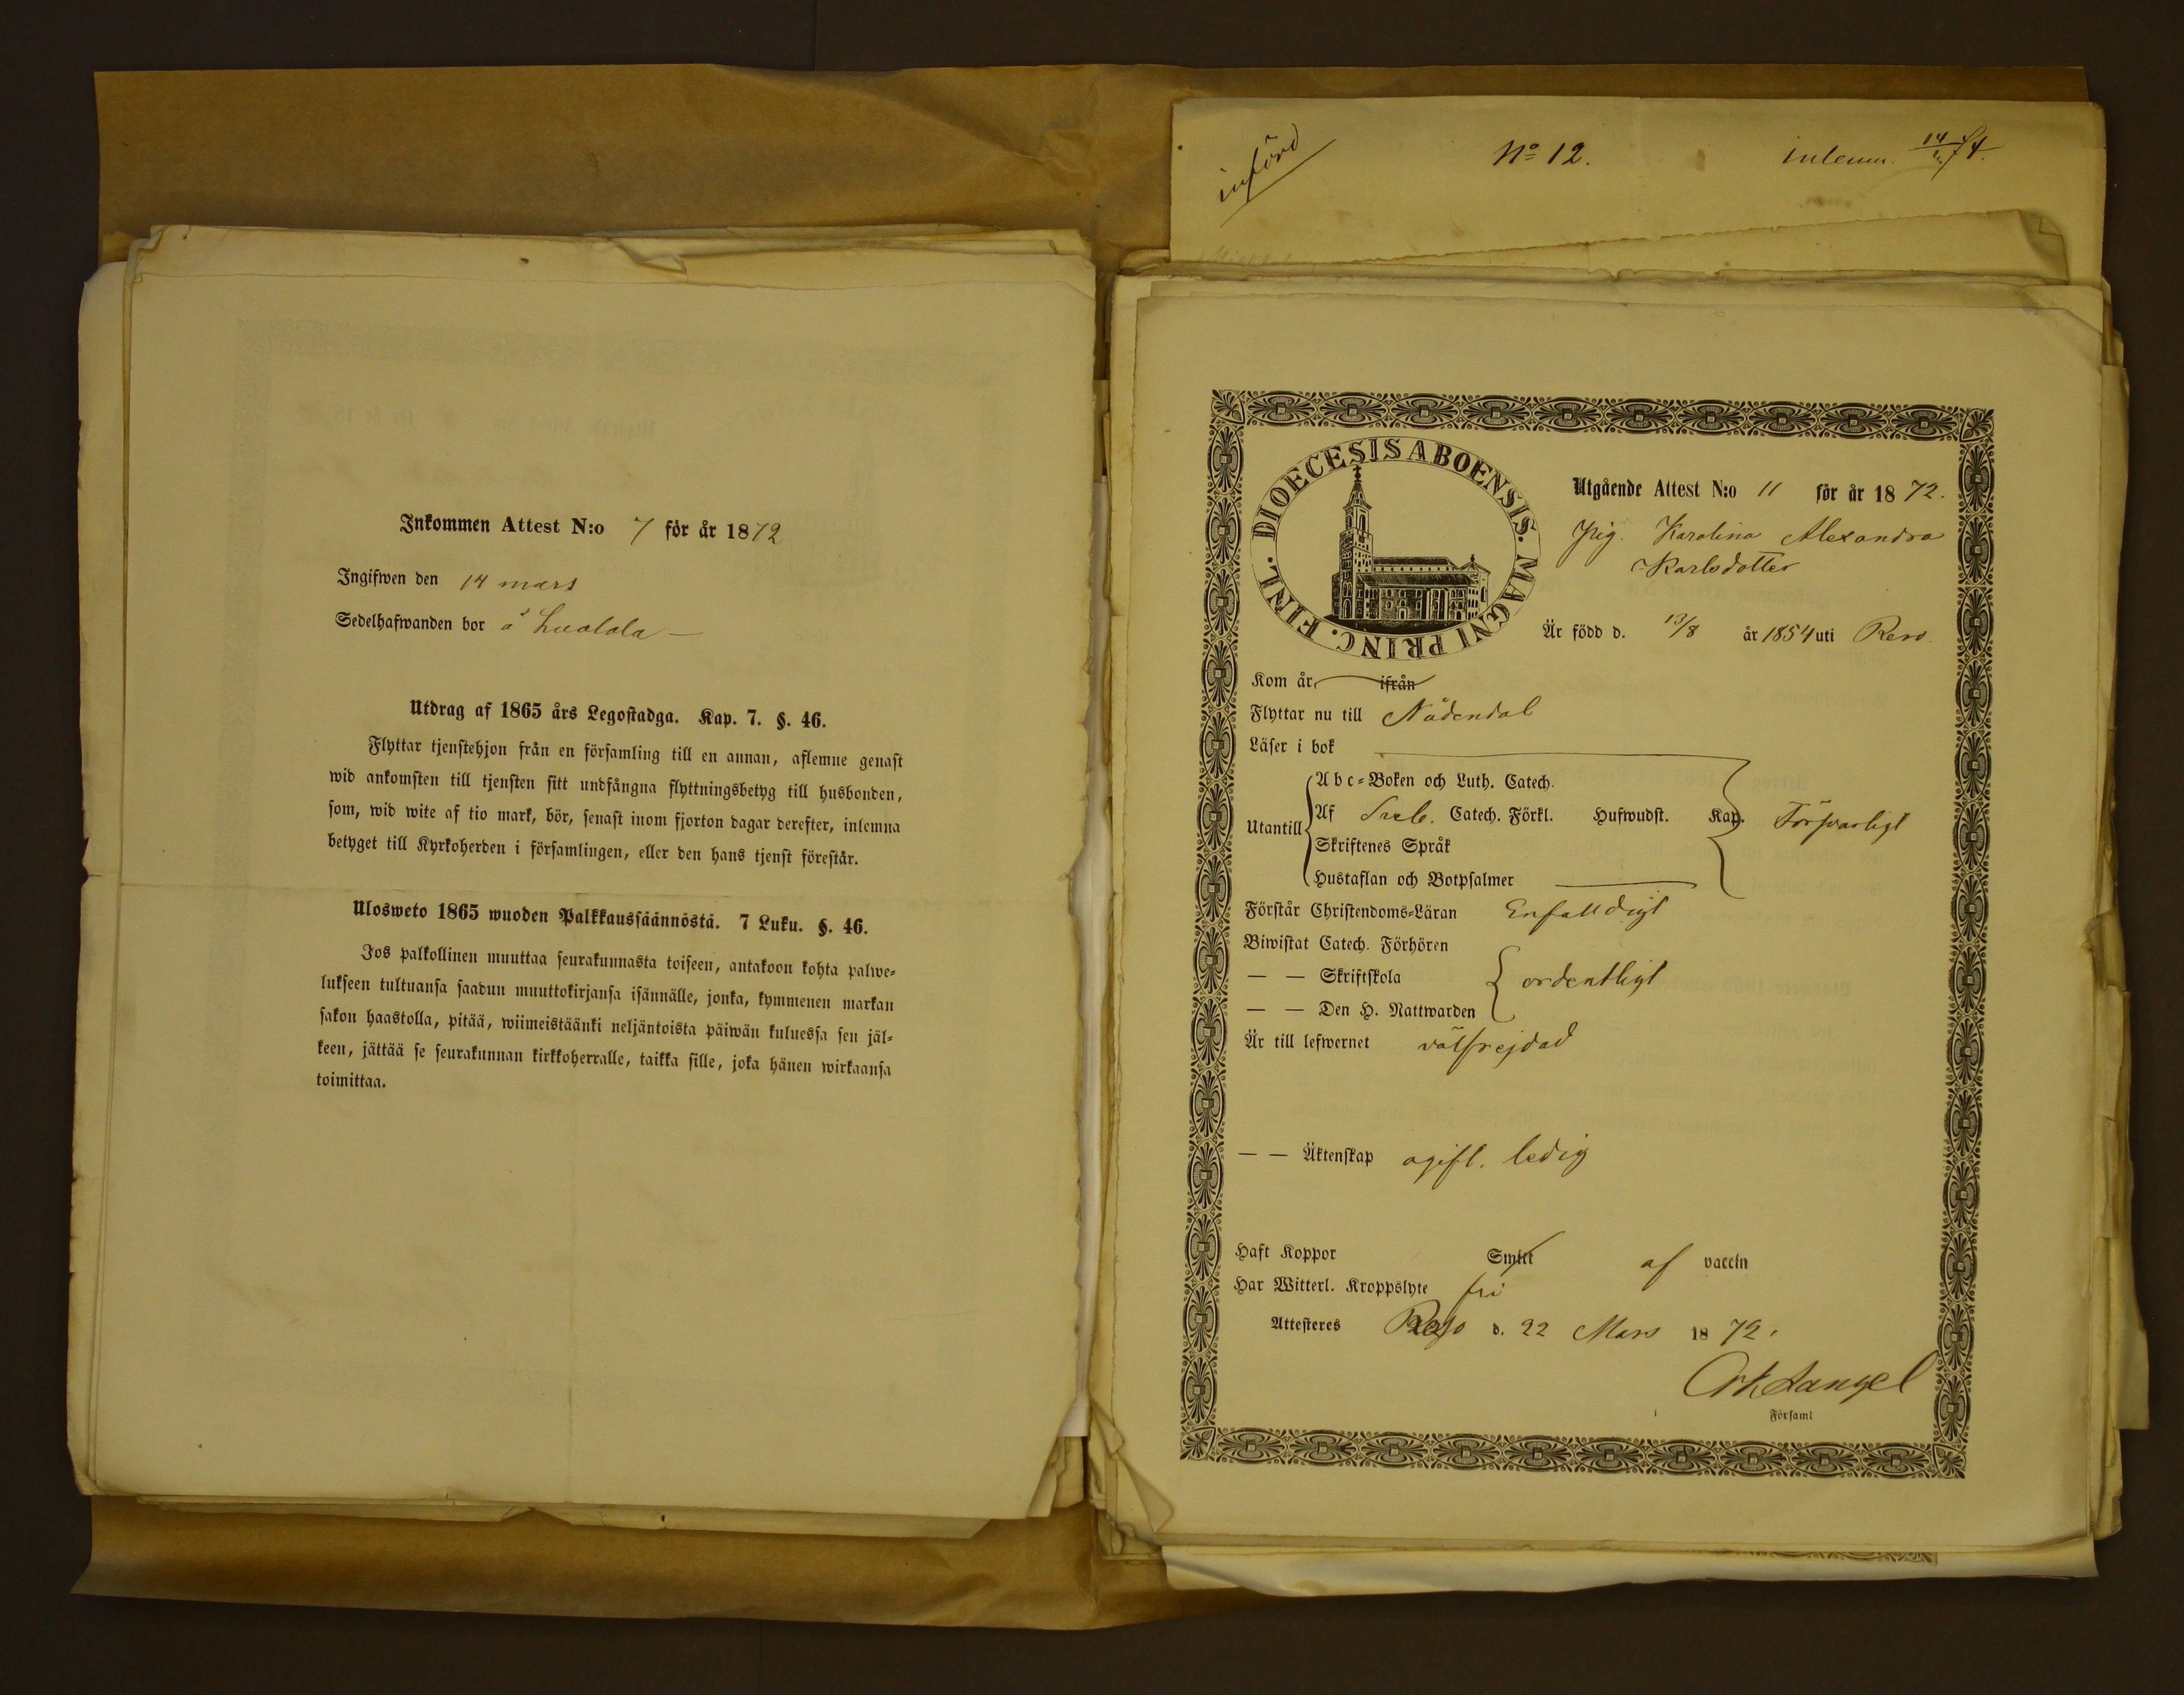 Inkommen Attest N:o 7 för år 1872
Ingifwen den 14 mars
Sedelhafwanden bor å Luolala
Utdrag af 1865 års Legostadga. Kap. 7. §. 46.
Flyttar tjenstehjon från en församling till en annan, aflemne genast
wid ankomsten till tjensten sitt undfångna flyttningsbetyg till husbonden,
som, wid wite af tio mark, bör, senast inom fjorton dagar derefter, inlemna
betyget till Kyrkoherden i församlingen, eller den hans tjenst förestår.
Ulosweto 1865 wuoden Palkkaussäännöstä. 7 Luku. §. 46.
Jos palkollinen muuttaa seurakunnasta toiseen, antakoon kohta palwe-
lukseen tultuansa saadun muuttokirjansa isännälle, jonka, kymmenen markan
sakon haastolla, pitää, wiimeistäänki neljäntoista päiwän kuluessa sen jäl-
keen, jättää se seurakunnan kirkkoherralle, taikka sille, joka hänen wirkaansa
toimittaa.
införd
No 12.
inlemn. 14/4
DIOECESIS ABOENSIS. MAGNI PRINC. FINL.
Utgående Attest N:o 11 för år 1872.
Pig. Karolina Alexandra
Karlsdotter
Är född d. 13/8 år 1854 uti Reso
Kom år ifrån
Flyttar nu till Nådendal
Läser i bok
Utantill
Abc-Boken och Luth. Catech.
Af Sveb. Catech. Förkl. Hufwudst. Kap. Försvarligt
Skriftenes Språk
Hustaflan och Botpsalmer
Förstår Christendoms-Läran Enfalldigt
Biwistat Catech. Förhören
— — Skriftskola ordentligt
— — Den H. Nattwarden
Är till lefwernet välfrejdad
— — Äktenskap ogift. ledig
Haft Koppor Smitt af vaccin
Har Witterl. Kroppslyte fri
Attesteres Reso d. 22 Mars 1872.
i Församl